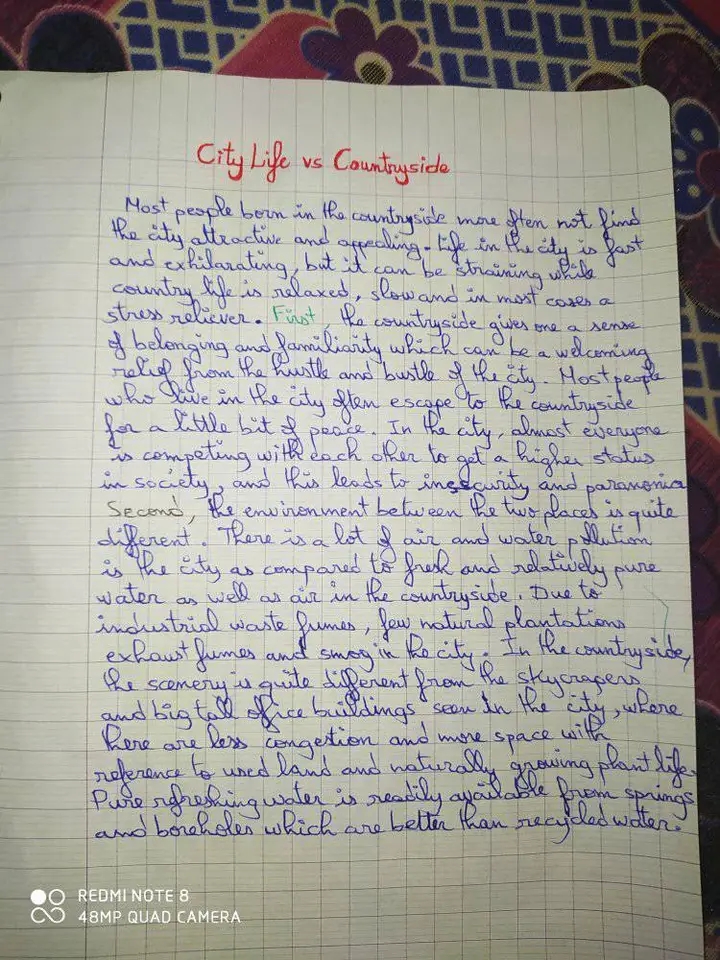 City Life vs Countryside
Most people born in the countryside more often not find
the city attractive and appealing. Life in the city is fast
and exhilarating, but it can be straining while
country life is relaxed, slow and in most cases a
stress reliever. First, the countryside gives one a sense
of belonging and familiarity which can be a welcoming
relief from the hustle and bustle of the city. Most people
who live in the city often escape to the countryside
for a little bit of peace. In the city, almost everyone
is competing with each other to get a higher status
in society, and this leads to insecurity and paranonia
Second, the environment between the two places is quite
different. There is a lot of air and water pollution
is the city as compared to fresh and relatively pure
water as well as air in the countryside. Due to
industrial waste fumes, few natural plantations
exhaust fumes and smog in the city. In the countryside,
the scenery is quite different from the skycrapers
and big tall office buildings seen in the city, where
there are less congestion and more space with
reference to used land and naturally growing plant life.
Pure refreshing water is readily available from springs
and boreholes which are better than recycled water.
REDMI NOTE 8
48MP QUAD CAMERA